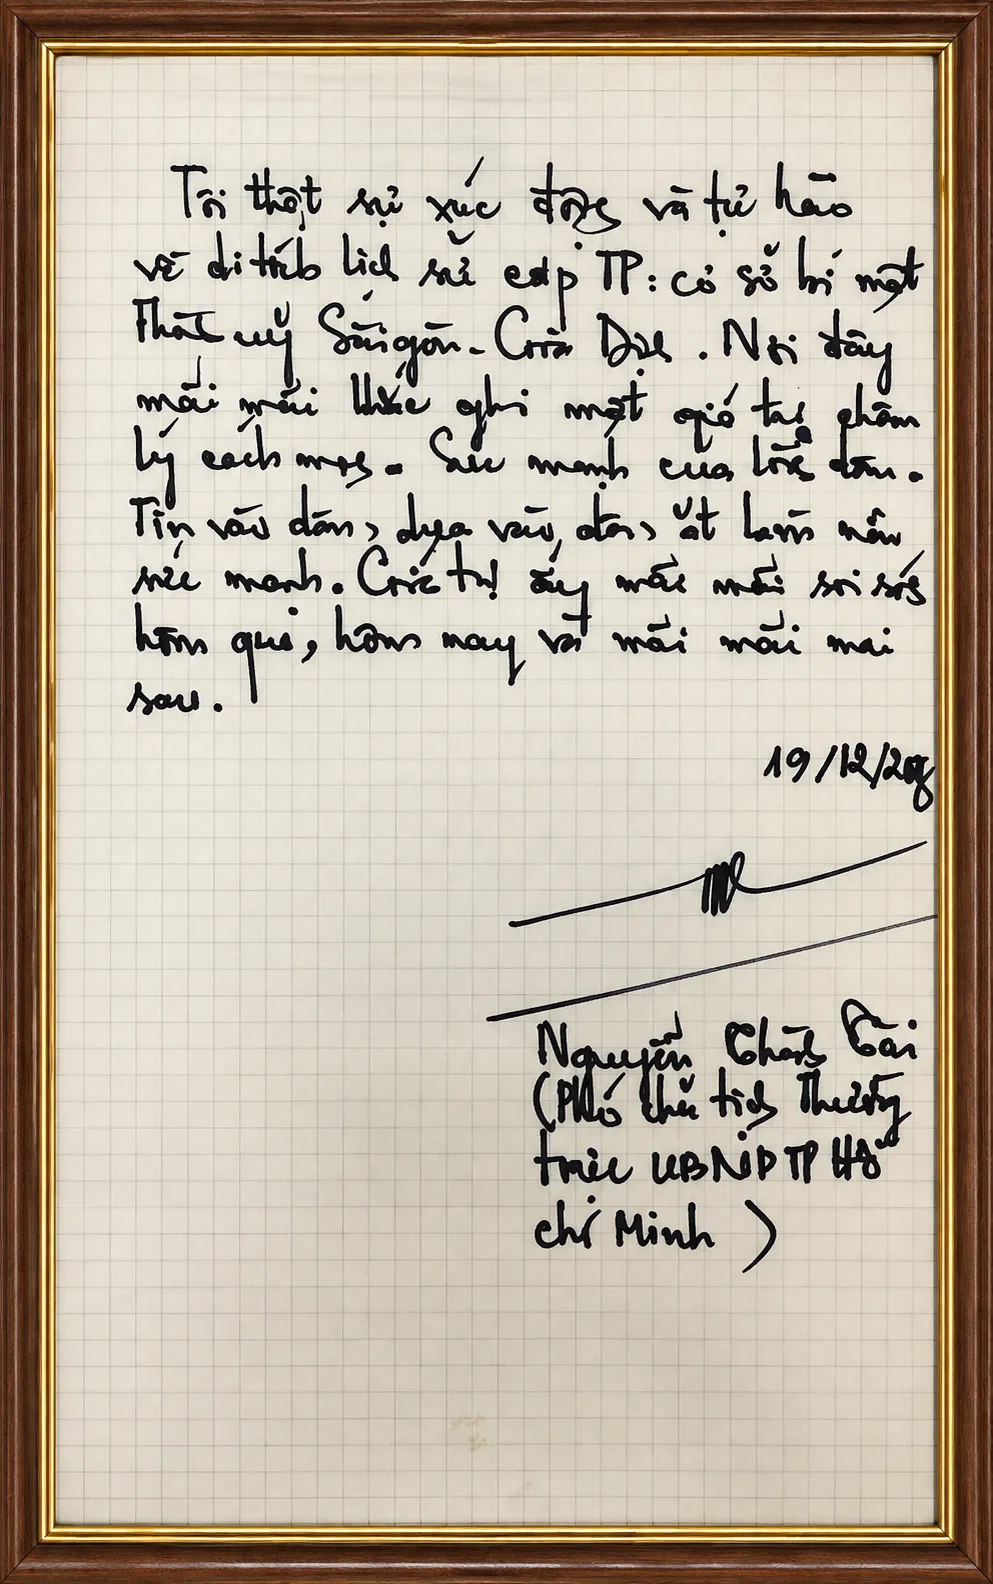 Tôi thật sự xúc động và tự hào
về di tích lịch sử cấp TP: cơ sở bí mật
Thành uỷ Sài gòn - Gia Định. Nơi đây
mãi mãi khắc ghi một giá trị chân
lý cách mạng. Sức mạnh của lòng dân.
Tin vào dân, dựa vào dân, ắt làm nên
sức mạnh. Giá trị ấy mãi mãi soi sáng
hôm qua, hôm nay và mãi mãi mai
sau.
19/12/20
Nguyễn Thành Tài
(Phó chủ tịch Thường
trực UBND TP Hồ
chí Minh )